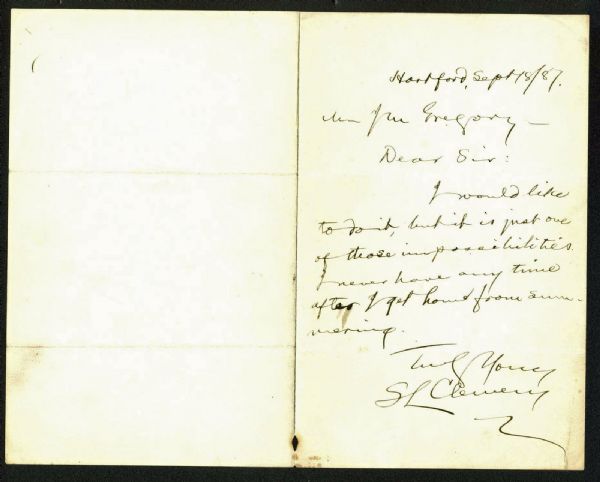 Hartford, Sept 18/87.
Gregory —
Dear Sir:
I would like
to do it, but it is just one
of those impossibilities.
I never have any time
after I get home from sum-
mering.
Truly Yours
SL Clemens